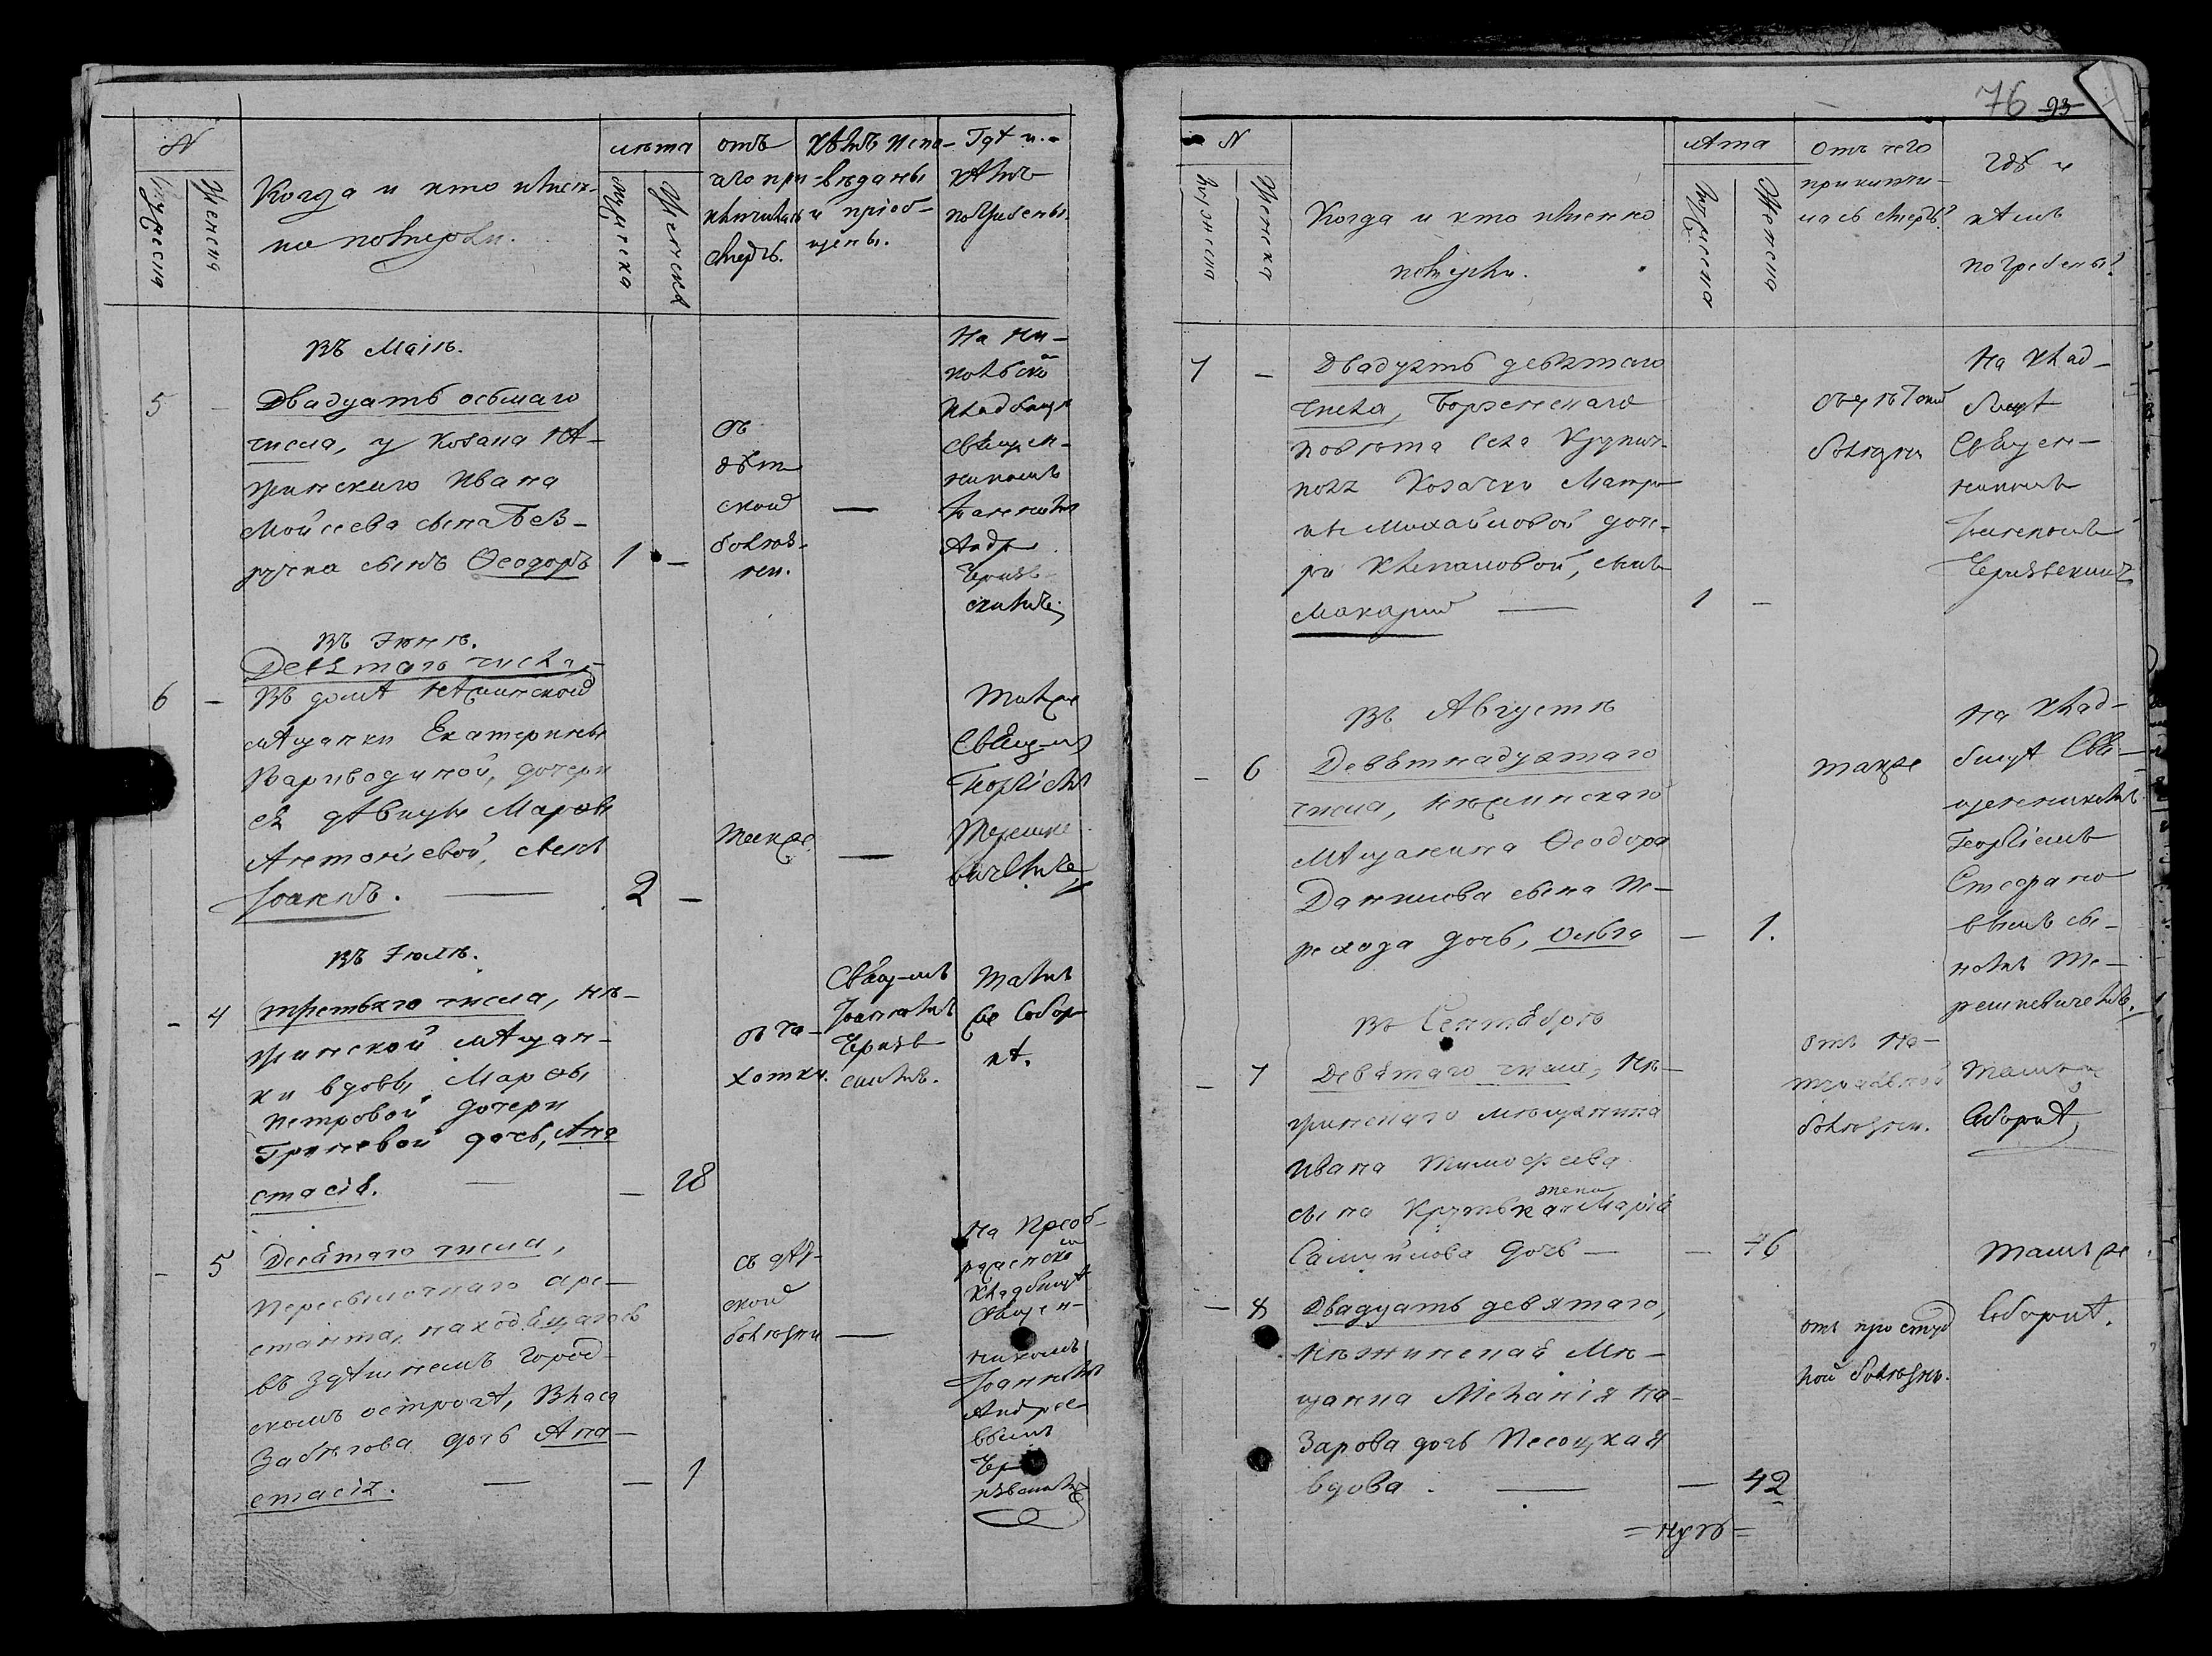 76 93
N
Мужеска
Женска
Когда и кто имен-
но померли.
лѣта
Мужеска
Женска
отъ
чего при-
ключилась
смерть.
кѣмъ испо-
вѣданы
и пріоб-
щены.
Гдѣ и
кѣмъ
погребены.
Въ Маіѣ.
5 -
Двадцать осьмаго
числа, у козака Нѣ-
жинскаго Ивана
Мойсеева сына Без-
ручка сынъ Ѳеодоръ
1 -
отъ
дѣт
ской
болѣз-
ни.
—
На Ни-
кольско
кладбищѣ
священ-
никомъ
Іоанномъ
Андр
Черняв
скимъ.
Въ Іюнѣ.
Девятаго числа
6 -
Въ домѣ нѣжинской
мѣщанки Екатерины
Вариводиной, дочери
ея дѣвицы Марѳы
Антоніевой, сынъ
Іоаннъ. —
2 -
также
—
также
Свящ-мъ
Георгіемъ
Тереш
вичемъ
Въ Іюлѣ.
- 4
третьяго числа, нѣ-
жинской мѣщан-
ки вдовы Марѳы
Петровой дочери
Гриневой дочь, Ана
стасія. —
- 28
отъ ча-
хотки.
Свящ-мъ
Іоанномъ
Черняв
скимъ.
тамъ
же Собор
нѣ.
- 5
Десятаго числа,
Пересылочнаго аре-
станта, находящагось
въ здѣшнемъ город-
скомъ острогѣ, Власа
Забѣгова дочь Ана-
стасія. —
- 1
съ дѣт-
ской
болѣзни
—
На Преоб-
раженско
кладбищѣ
Священ-
никомъ
Іоанномъ
Андрее
вымъ
Чер
нявскимъ
N
Мужеска
Женска
Когда и кто именно
померли.
лѣта
Мужеска
Женска
Отъ чего
приключи-
лась смерть?
гдѣ и
кѣмъ
погребены?
7 -
Двадцать девятаго
числа, Борзенскаго
повѣта села Крупич-
поля Козачки Матро
ны Михайловой доче-
ри Климановой, сынъ
Макарій —
1 -
болѣзни
На клад-
бищѣ
Священ-
никомъ
Іоанномъ
Чернявскимъ
Въ Августѣ
- 6
Девятнадцятаго
числа, нѣжинскаго
Мѣщанина Ѳеодора
Данилова сына Пе-
рехода дочь, Ольга
- 1.
также
На клад-
бищѣ Свя-
щенникомъ
Георгіемъ
Стефано
вымъ сы-
номъ Те-
решкевичемъ.
Въ Септябрѣ
- 7
Девятаго числа, Нѣ-
жинскаго мѣщанина
Ивана Тимофеева
сына Крутька жена Марія
Самуйлова дочь —
- 76
отъ На-
туральной
болѣзни.
тамже
Соборнѣ
- 8
Двадцать девятаго,
Нѣжинская Мѣ-
щанка Меланія На-
зарова дочь Песоцкая
вдова. —
- 42
отъ простуд
ной болѣзни.
тамъ же
Соборнѣ.